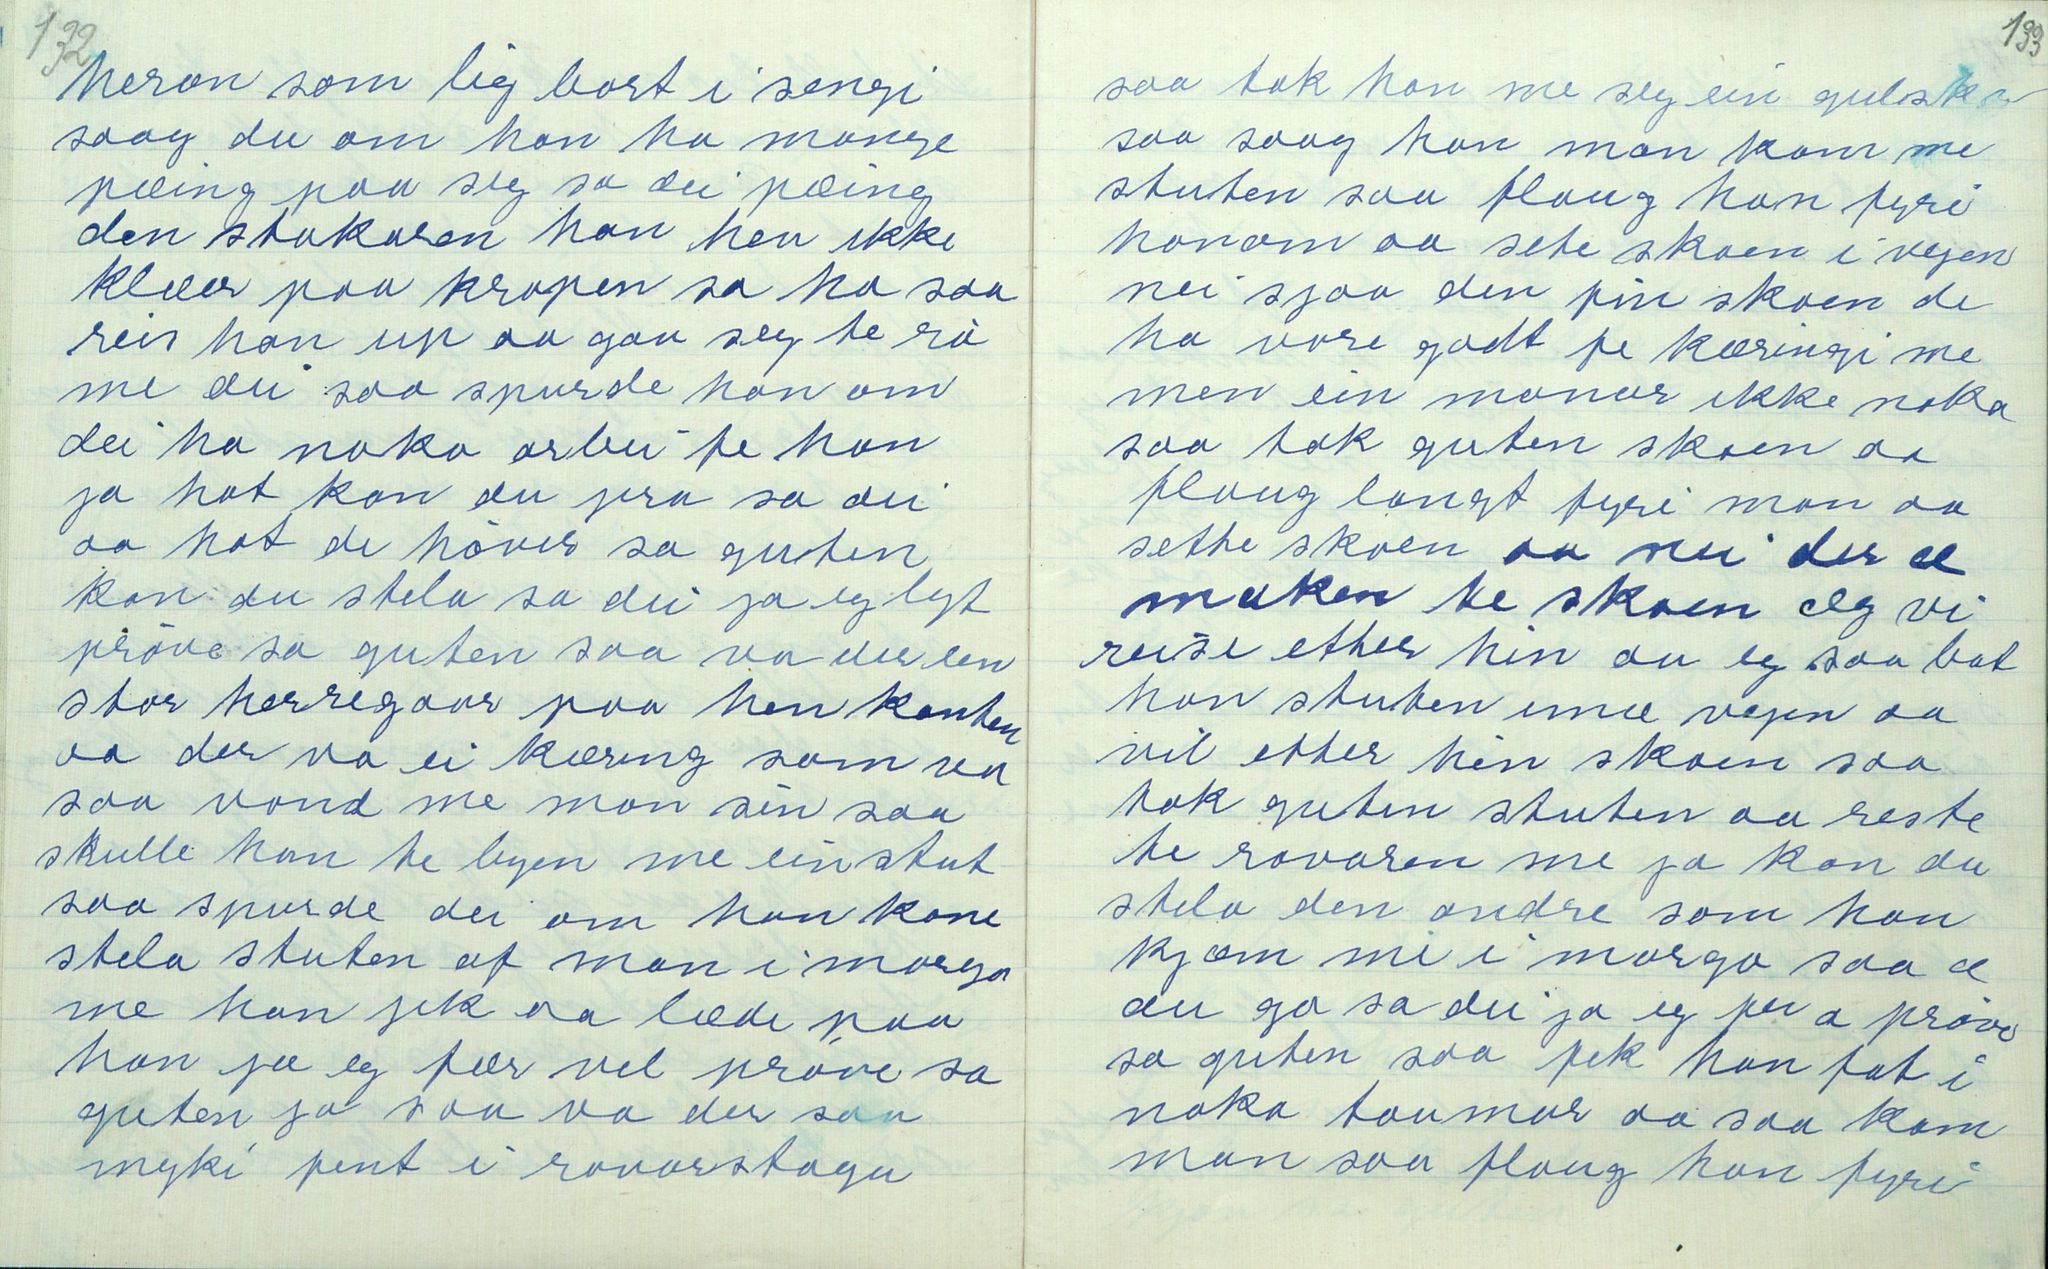 132
heron som lig bort i sengi
saag du om han ha mange
pæing paa seg sa dei pæing
den stakaren han hev ikke
klæer paa kropen sa ho saa
reis han up aa gaa seg te rö
me dei saa spurde han om
dei ha noko arbei fe han
ja hot kan du jera sa dei
aa hot de höver sa guten
kan du stela sa dei ja eg lyt
pröve sa guten saa va der en
stor herregaar paa hen kanten
aa der va ei kæring som va
saa vond me man sin saa
skulle han te byen me ein stut
saa spurde dei om han kone
stela stuten af man i morga
me han jek aa lædi paa
han ja eg fær vel pröve sa
guten ja saa va der saa
myki pent i rovarstogu
133
saa tok han me seg ein gulsko
saa saag han man kom me
stuten saa floug han fyri
honom aa sete skoen i vejen
nei sjaa den fin skoen de
ha vore godt fe kæringi me
men ein monar ikke noka
saa tok guten skoen aa
floug langt fyri man aa
sethe skoen aa nei der æ
maken te skoen æg vi
reise ether hin au eg saa bat
han stuten imæ vejen aa
vil ether hin skoen saa
tok guten stuten aa reste
te rovaren me ja kan du
stela den andre som han
kjæm mi i morgo saa æ
du go sa dei ja eg fer a pröve
sa guten saa fek han fat i
noko toumar aa saa kom
man saa floug han fyri